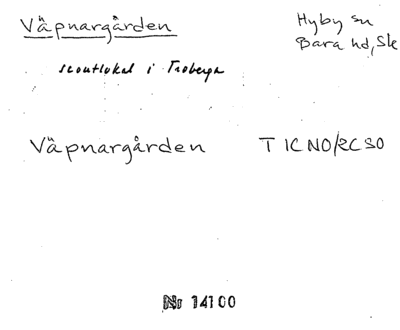 Väpnargården
Hyby sn
Bara hd, Sk
scoutlokal i Troberga
Väpnargården T 1C NO/2C SO
Nr 14100